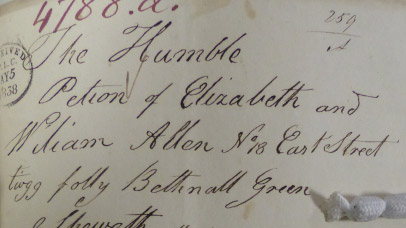 4788.a.
259
A
RECEIVED
P.L.C.
MY5
1838
The Humble
Petion of Elizabeth and
William Allen No 18 East Street
twigg folly Bethnall Green
Sheweth